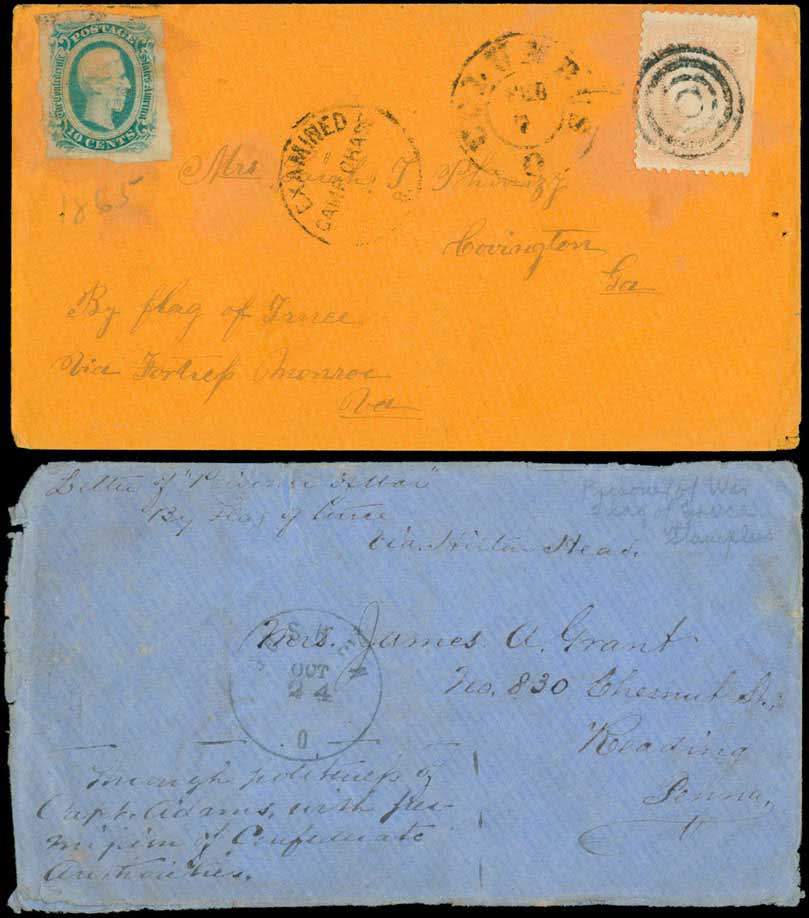 POSTAGE
The Confederate States of America
10 CENTS
EXAMINED
CAMP CHASE
COLUMBUS
FEB
7
O
Mrs T
Covington
Ga
1865
By flag of Truce
Via Fortress Monroe
Va
Letter of "Prisoner of War"
By Flag of truce
via Hilton Head.
Prisoner of War
Flag of Truce
Stampless
OCT
24
O.
Mrs. James A. Grant
No. 830 Chesnut St.,
Reading
Penna,
Through politeness of
Capt. Adams, with per-
mission of Confederate
Authorities.